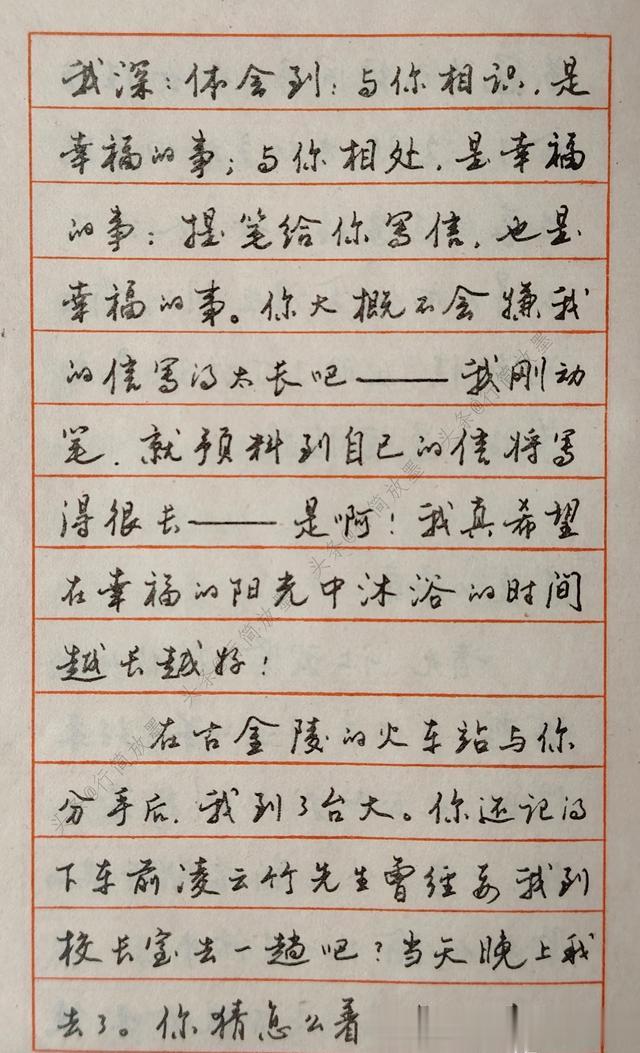 我深：体会到：与你相识，是
幸福的事；与你相处，是幸福
的事；提笔给你写信，也是
幸福的事。你大概不会嫌我
的信写得太长吧——我刚动
笔，就预料到自己的信将写
得很长——是啊！我真希望
在幸福的阳光中沐浴的时间
越长越好！
在古金陵的火车站与你
分手后，我到了台大。你还记得
下车前凌云竹先生曾经要我到
校长室去一趟吧？当天晚上我
去了。你猜怎么着
头条@行简放墨
头条@行简放墨
头条@行简放墨
头条@行简放墨